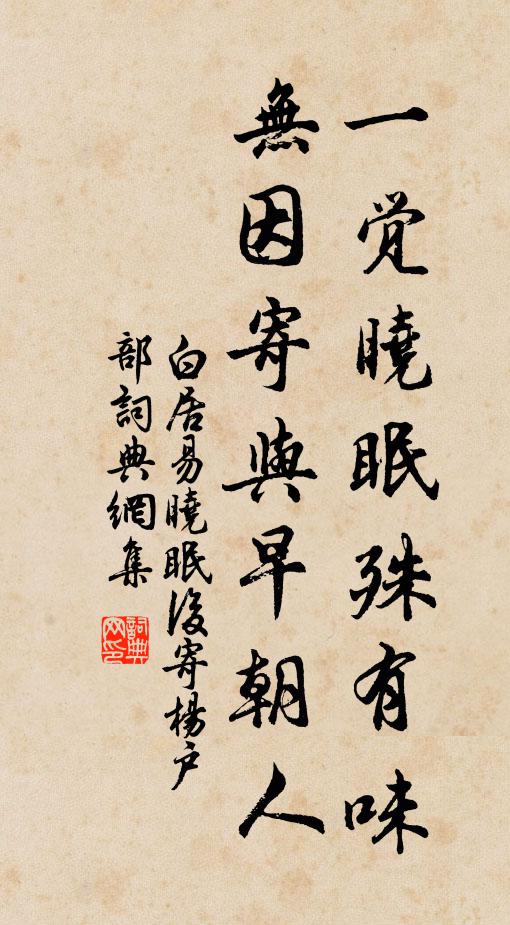 一覚曉眠殊有味
無因寄與早朝人
白居易曉眠後寄楊戶
部詞典網集
詞典网印